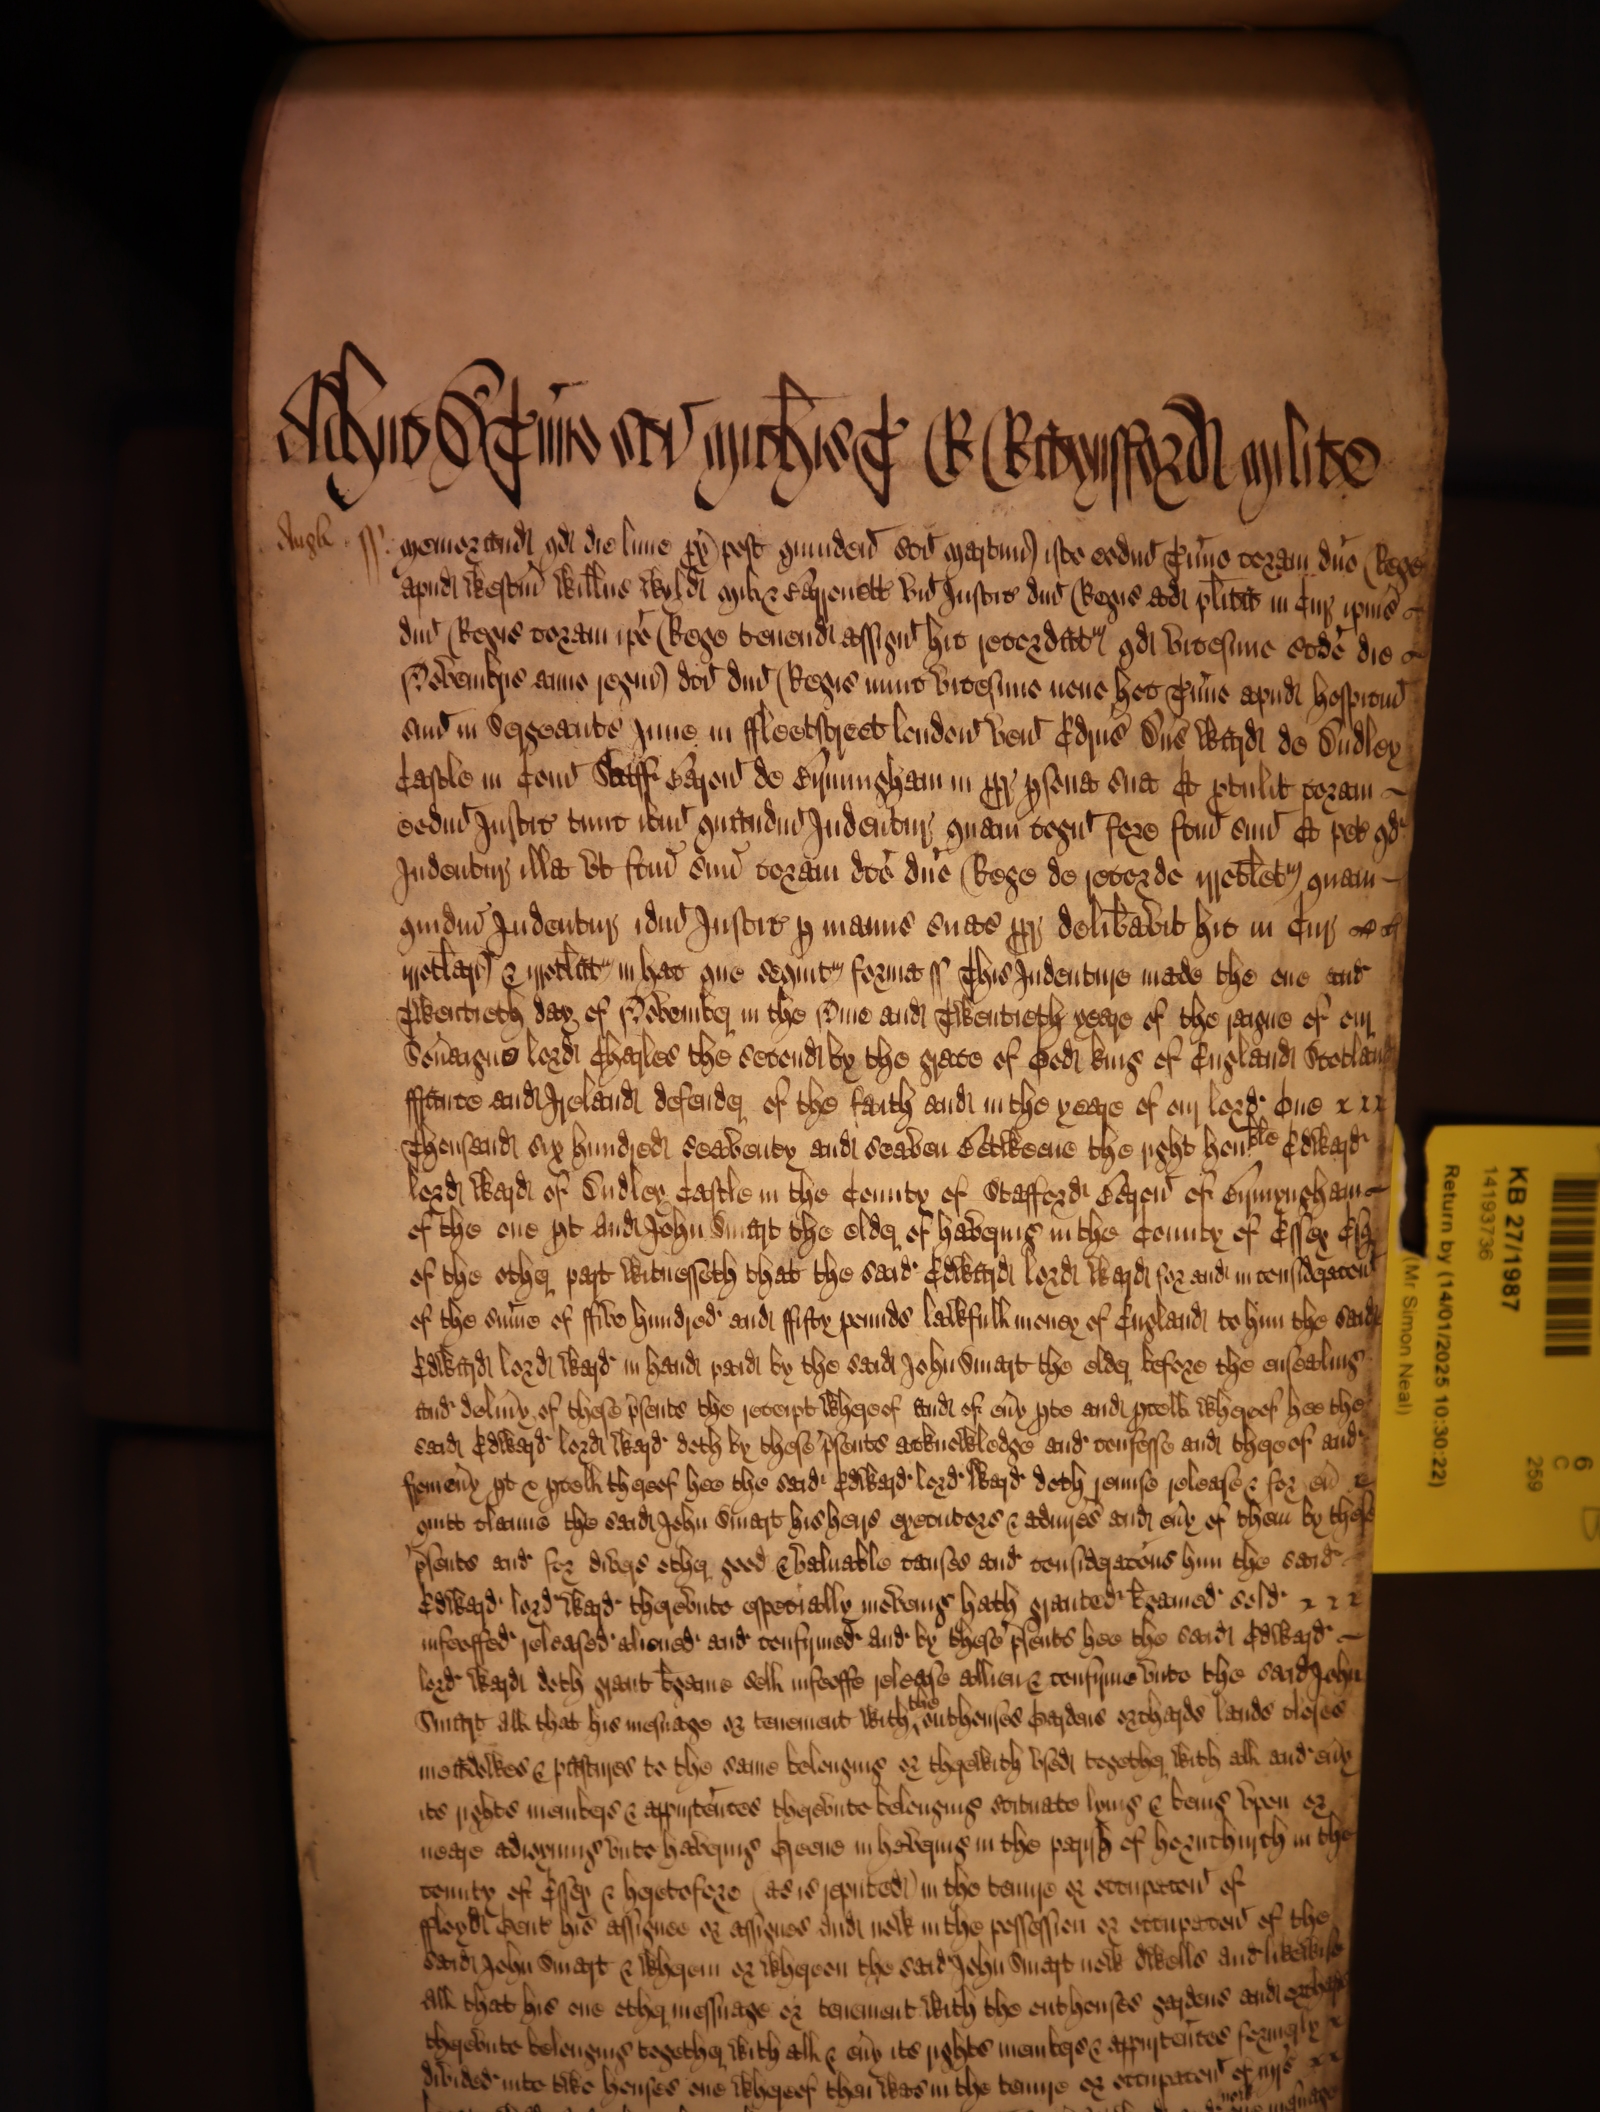 Adhuc de Termino sci Michis T R Raynsford milite
Angl ss. Memorand qd die lune px post quinden sci Martini isto eodm Termino coram dno Rege
apud Westm Willus Wyld miles & Baronett un Justic dni Regis ad plita in Cur ipius
dni Regis coram ipo Rege tenend assign hic recordatr qd vicesimo scdo die
Novembris anno regni dci dni Regis nunc vicesimo nono hoc Termino apud hospicm
suu in Sergeants Inne in ffleetstreet london ven Edrus Dns Ward de Dudley
Castle in Com Staff Baron de Birmingham in ppr psona sua Et ptulit coram
eodm Justic tunc ibm quandm Indentur quam cogn fore fcm suu Et pet qd
Indentur illa ut fcm suu coram dco dno Rege de recordo irrotletr quam
quidm Indentur idm Justic p manus suas ppr delibavit hic in Cur
irrotland & irrotlatr in hac que sequitr forma ss This Indenture made the one and
Twentieth day of November in the Nine and Twentieth yeare of the raigne of our
Soveraigne lord Charles the second by the grace of God king of England Scotland
ffrance and Ireland defender of the faith and in the yeare of our lord One x x x
Thousand six hundred seaventy and seaven Betweene the right honble Edward
lord Ward of Dudley Castle in the County of Stafford Baron of Birmyngham
of the one pt and John Smart the elder of Havering in the County of Essex Esq
of the other part Witnesseth that the said Edward lord Ward for and in consideracon
of the sume of ffive hundred and ffifty pounds lawfull money of England to him the said
Edward lord Ward in hand paid by the said John Smart the elder before the ensealing
and delivy of these psents the receipt whereof and of evy pte and pcell whereof hee the
said Edward lord Ward doth by these psents acknowledge and confesse and thereof and
from evy pt & pcell thereof hee the said Edward lord Ward doth remise release & for ev
quitt clayme the said John Smart his heirs executors & admrs and evy of them by these
psents and for divers other good & valuable causes and consideracons him the said
Edward lord Ward thereunto especially moveing hath granted bgained sold x x x
infeoffed released aliened and confirmed and by these psents hee the said Edward
lord Ward doth grant bgaine sell infeoffe release allien & confirme unto the said John
Smart all that his mesuage or tenement with the outhouses Gardens orchards lands closes
meadowes & pastures to the same belonging or therewith used together with all and evy
its rights members & appurtences thereunto belonging scituate lying & being upon or
neare adioyning unto Havering Greene in Havering in the parish of Hornchurch in the
county of Essex & heretofore (as is reputed) in the tenure or occupacon of
ffloyd Gent his assignee or assignes and now in the possession or occupacon of the
said John Smart & wherein or whereon the said John Smart now dwells and likewise
all that his one other messuage or tenement with the outhouses gardens and orchards
thereunto belonging together with all & evy its rights members & appurtences formerly x
divided into two houses one whereof then was in the tenure or occupacon of mrs x x
KB 27/1987
14193736
Return by (14/01/2025 10:30:22)
(Mr Simon Neal)
6
C
259